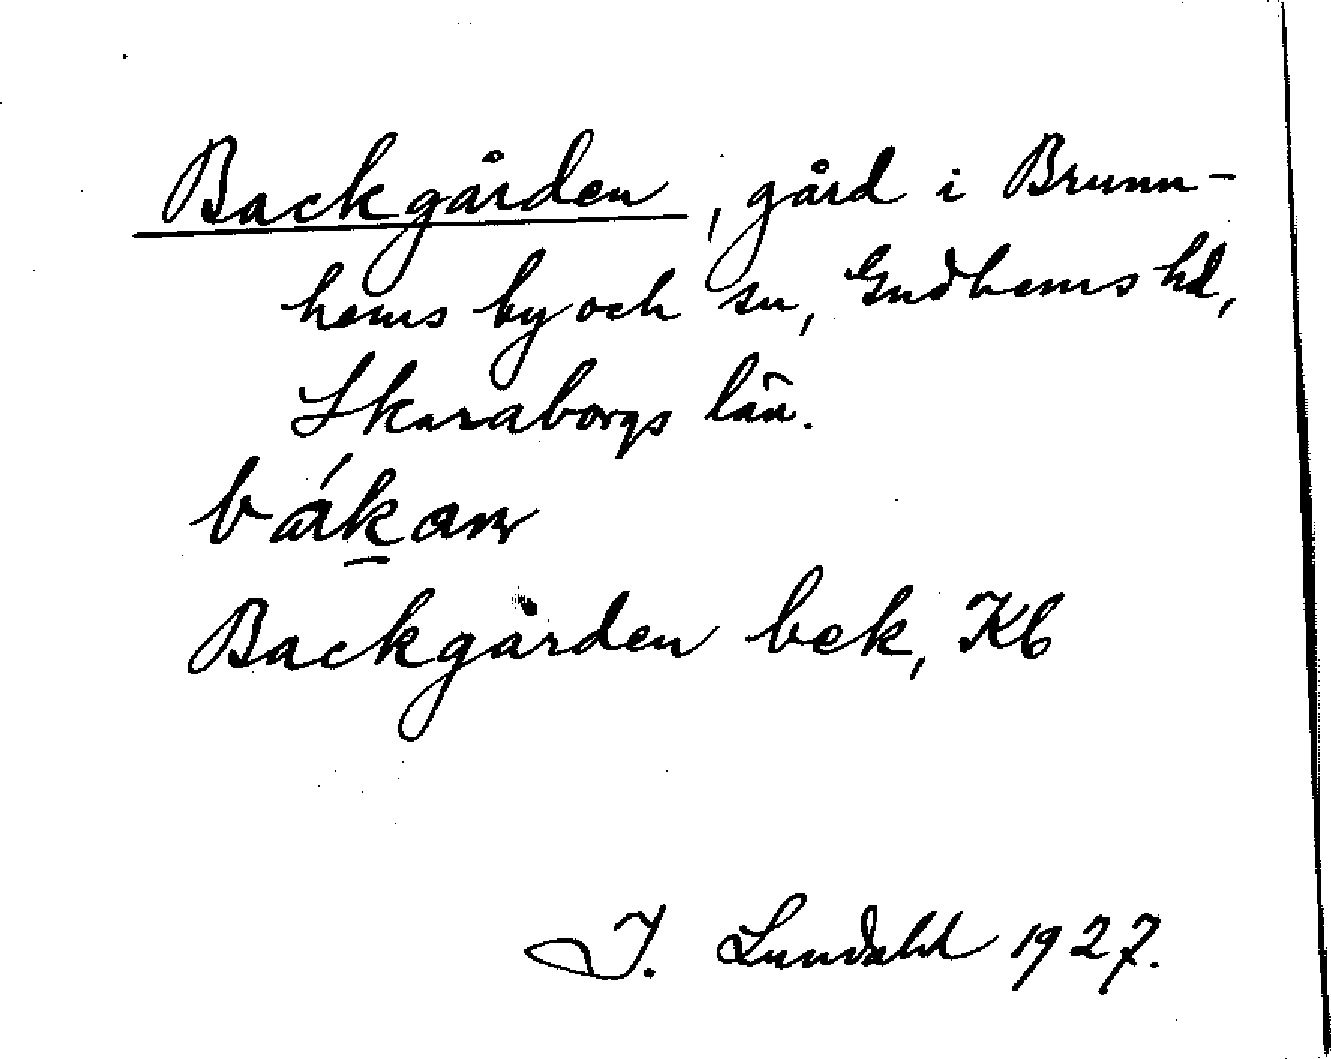 Backgården, gård i Brunn-
hems by och sn, Gudhems hd,
Skaraborgs län.
bákan
Backgården bek, Kb
I. Lundahl 1927.